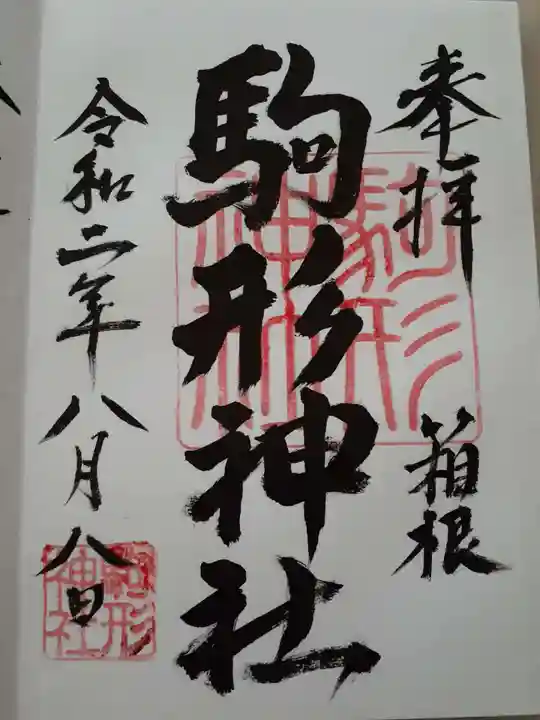 奉拝
箱根
駒形神社
令和二年八月八日
駒形
神社
駒形
神社